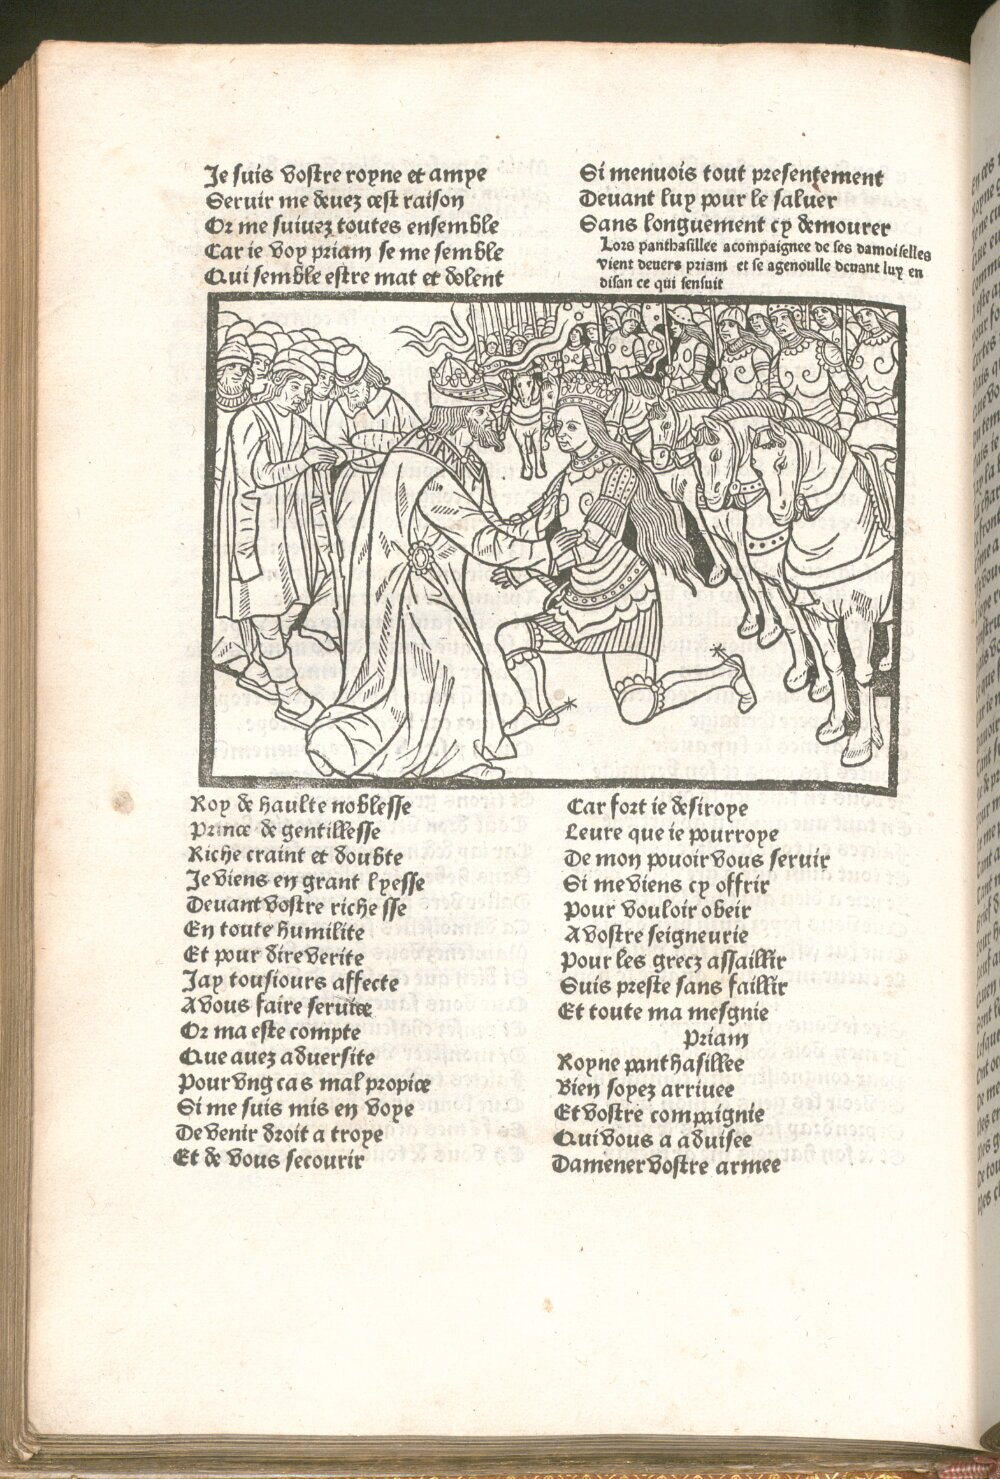 Je suis vostre royne et amye
Seruir me deuez cest raison
Or me suiuez toutes ensemble
Car ie voy priam se me semble
Qui semble estre mat et dolent
Si menuois tout presentement
Deuant luy pour le saluer
Sans longuement cy demourer
Lors panthasillee acompaignee de ses damoiselles
vient deuers priam et se agenoulle deuant luy en
disan ce qui sensuit
Roy de haulte noblesse
Prince de gentillesse
Riche craint et doubte
Je viens en grant lyesse
Deuant vostre richesse
En toute humilite
Et pour dire verite
Jay tousiours affecte
A vous faire seruice
Or ma este compte
Que auez aduersite
Pour vng cas mal propice
Si me suis mis en voye
De venir droit a troye
Et de vous secourir
Car fort ie desiroye
Leure que ie pourroye
De mon pouoir vous seruir
Si me viens cy offrir
Pour vouloir obeir
A vostre seigneurie
Pour les grecz assaillir
Suis preste sans faillir
Et toute ma mesgnie
Priam
Royne panthasillee
Bien soyez arriuee
Et vostre compaignie
Qui vous a aduisee
Damener vostre armee